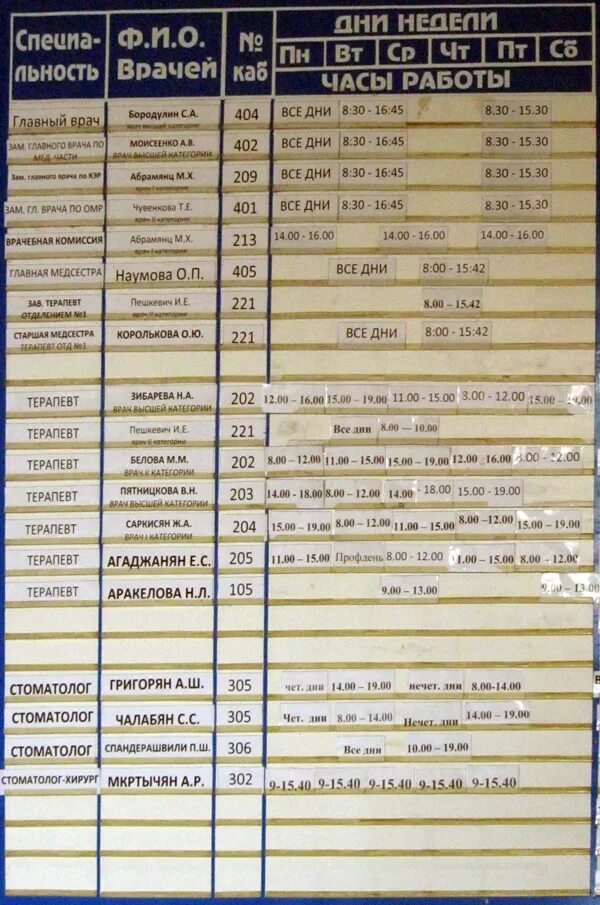 Специа-льность Ф.И.О. Врачей № каб ДНИ НЕДЕЛИ
Пн Вт Ср Чт Пт Сб
ЧАСЫ РАБОТЫ
Главный врач Бородулин С.А. врач высшей категории 404 ВСЕ ДНИ 8:30 - 16:45 8.30 - 15.30
ЗАМ. ГЛАВНОГО ВРАЧА ПО МЕД. ЧАСТИ МОИСЕЕНКО А.В. ВРАЧ ВЫСШЕЙ КАТЕГОРИИ 402 ВСЕ ДНИ 8:30 - 16:45 8.30 - 15.30
Зам. главного врача по КЭР Абрамянц М.Х. врач I категории 209 ВСЕ ДНИ 8:30 - 16:45 8.30 - 15.30
ЗАМ. ГЛ. ВРАЧА ПО ОМР Чувенкова Т.Е. врач II категории 401 ВСЕ ДНИ 8:30 - 16:45 8.30 - 15.30
ВРАЧЕБНАЯ КОМИССИЯ Абрамянц М.Х. врач I категории 213 14.00 - 16.00 14.00 - 16.00 14.00 - 16.00
ГЛАВНАЯ МЕДСЕСТРА Наумова О.П. 405 ВСЕ ДНИ 8:00 - 15:42
ЗАВ. ТЕРАПЕВТ ОТДЕЛЕНИЕМ №1 Пешкевич И.Е. врач II категории 221 8.00 – 15.42
СТАРШАЯ МЕДСЕСТРА ТЕРАПЕВТ ОТД №1 КОРОЛЬКОВА О.Ю. 221 ВСЕ ДНИ 8:00 - 15:42
ТЕРАПЕВТ ЗИБАРЕВА Н.А. ВРАЧ ВЫСШЕЙ КАТЕГОРИИ 202 12.00 – 16.00 15.00 – 19.00 11.00 - 15.00 8.00 - 12.00 15.00 – 19.00
ТЕРАПЕВТ Пешкевич И.Е. врач II категории 221 Все дни 8.00 — 10.00
ТЕРАПЕВТ БЕЛОВА М.М. ВРАЧ II КАТЕГОРИИ 202 8.00 – 12.00 11.00 – 15.00 15.00 – 19.00 12.00 – 16.00 8.00 - 12.00
ТЕРАПЕВТ ПЯТНИЦКОВА В.Н. ВРАЧ ВЫСШЕЙ КАТЕГОРИИ 203 14.00 - 18.00 8.00 – 12.00 14.00 - 18.00 15.00 - 19.00
ТЕРАПЕВТ САРКИСЯН Ж.А. ВРАЧ I КАТЕГОРИИ 204 15.00 – 19.00 8.00 – 12.00 11.00 – 15.00 8.00 – 12.00 15.00 – 19.00
ТЕРАПЕВТ АГАДЖАНЯН Е.С. 205 11.00 – 15.00 Профдень 8.00 - 12.00 11.00 – 15.00 8.00 – 12.00
ТЕРАПЕВТ АРАКЕЛОВА Н.Л. 105 9.00 – 13.00 9.00 – 13.00
СТОМАТОЛОГ ГРИГОРЯН А.Ш. 305 чет. дни 14.00 – 19.00 нечет. дни 8.00-14.00
СТОМАТОЛОГ ЧАЛАБЯН С.С. 305 Чет. дни 8.00 – 14.00 Нечет. дни 14.00 – 19.00
СТОМАТОЛОГ СПАНДЕРАШВИЛИ П.Ш. 306 Все дни 10.00 – 19.00
СТОМАТОЛОГ-ХИРУРГ МКРТЫЧЯН А.Р. 302 9-15.40 9-15.40 9-15.40 9-15.40 9-15.40